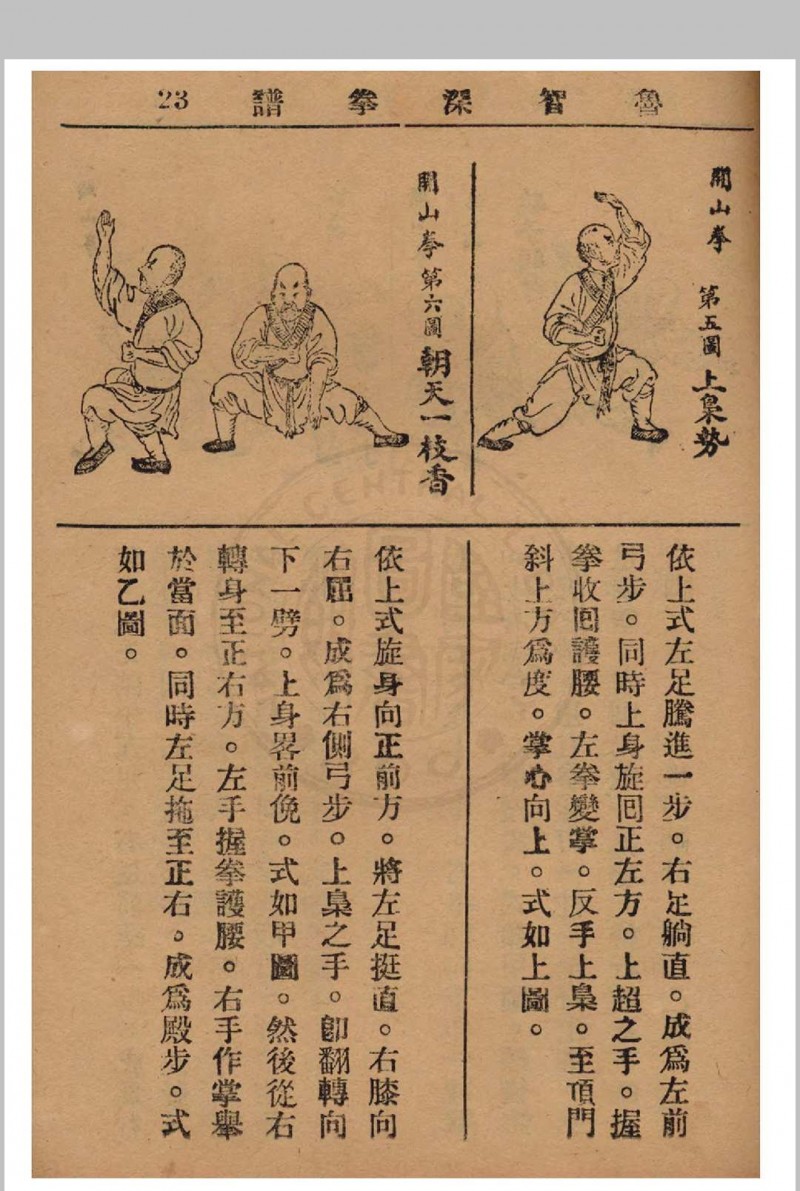 魯智深拳譜 23
開山拳 第五圖 上梟勢
依上式左足騰進一步。右足躺直。成爲左前
弓步。同時上身旋囘正左方。上超之手。握
拳收囘護腰。左拳變掌。反手上梟。至頂門
斜上方爲度。掌心向上。式如上圖。
開山拳 第六圖 朝天一枝香
依上式旋身向正前方。將左足挺直。右膝向
右屈。成爲右側弓步。上梟之手。卽翻轉向
下一劈。上身畧前俛。式如甲圖。然後從右
轉身至正右方。左手握拳護腰。右手作掌舉
於當面。同時左足拖至正右。成爲殿步。式
如乙圖。